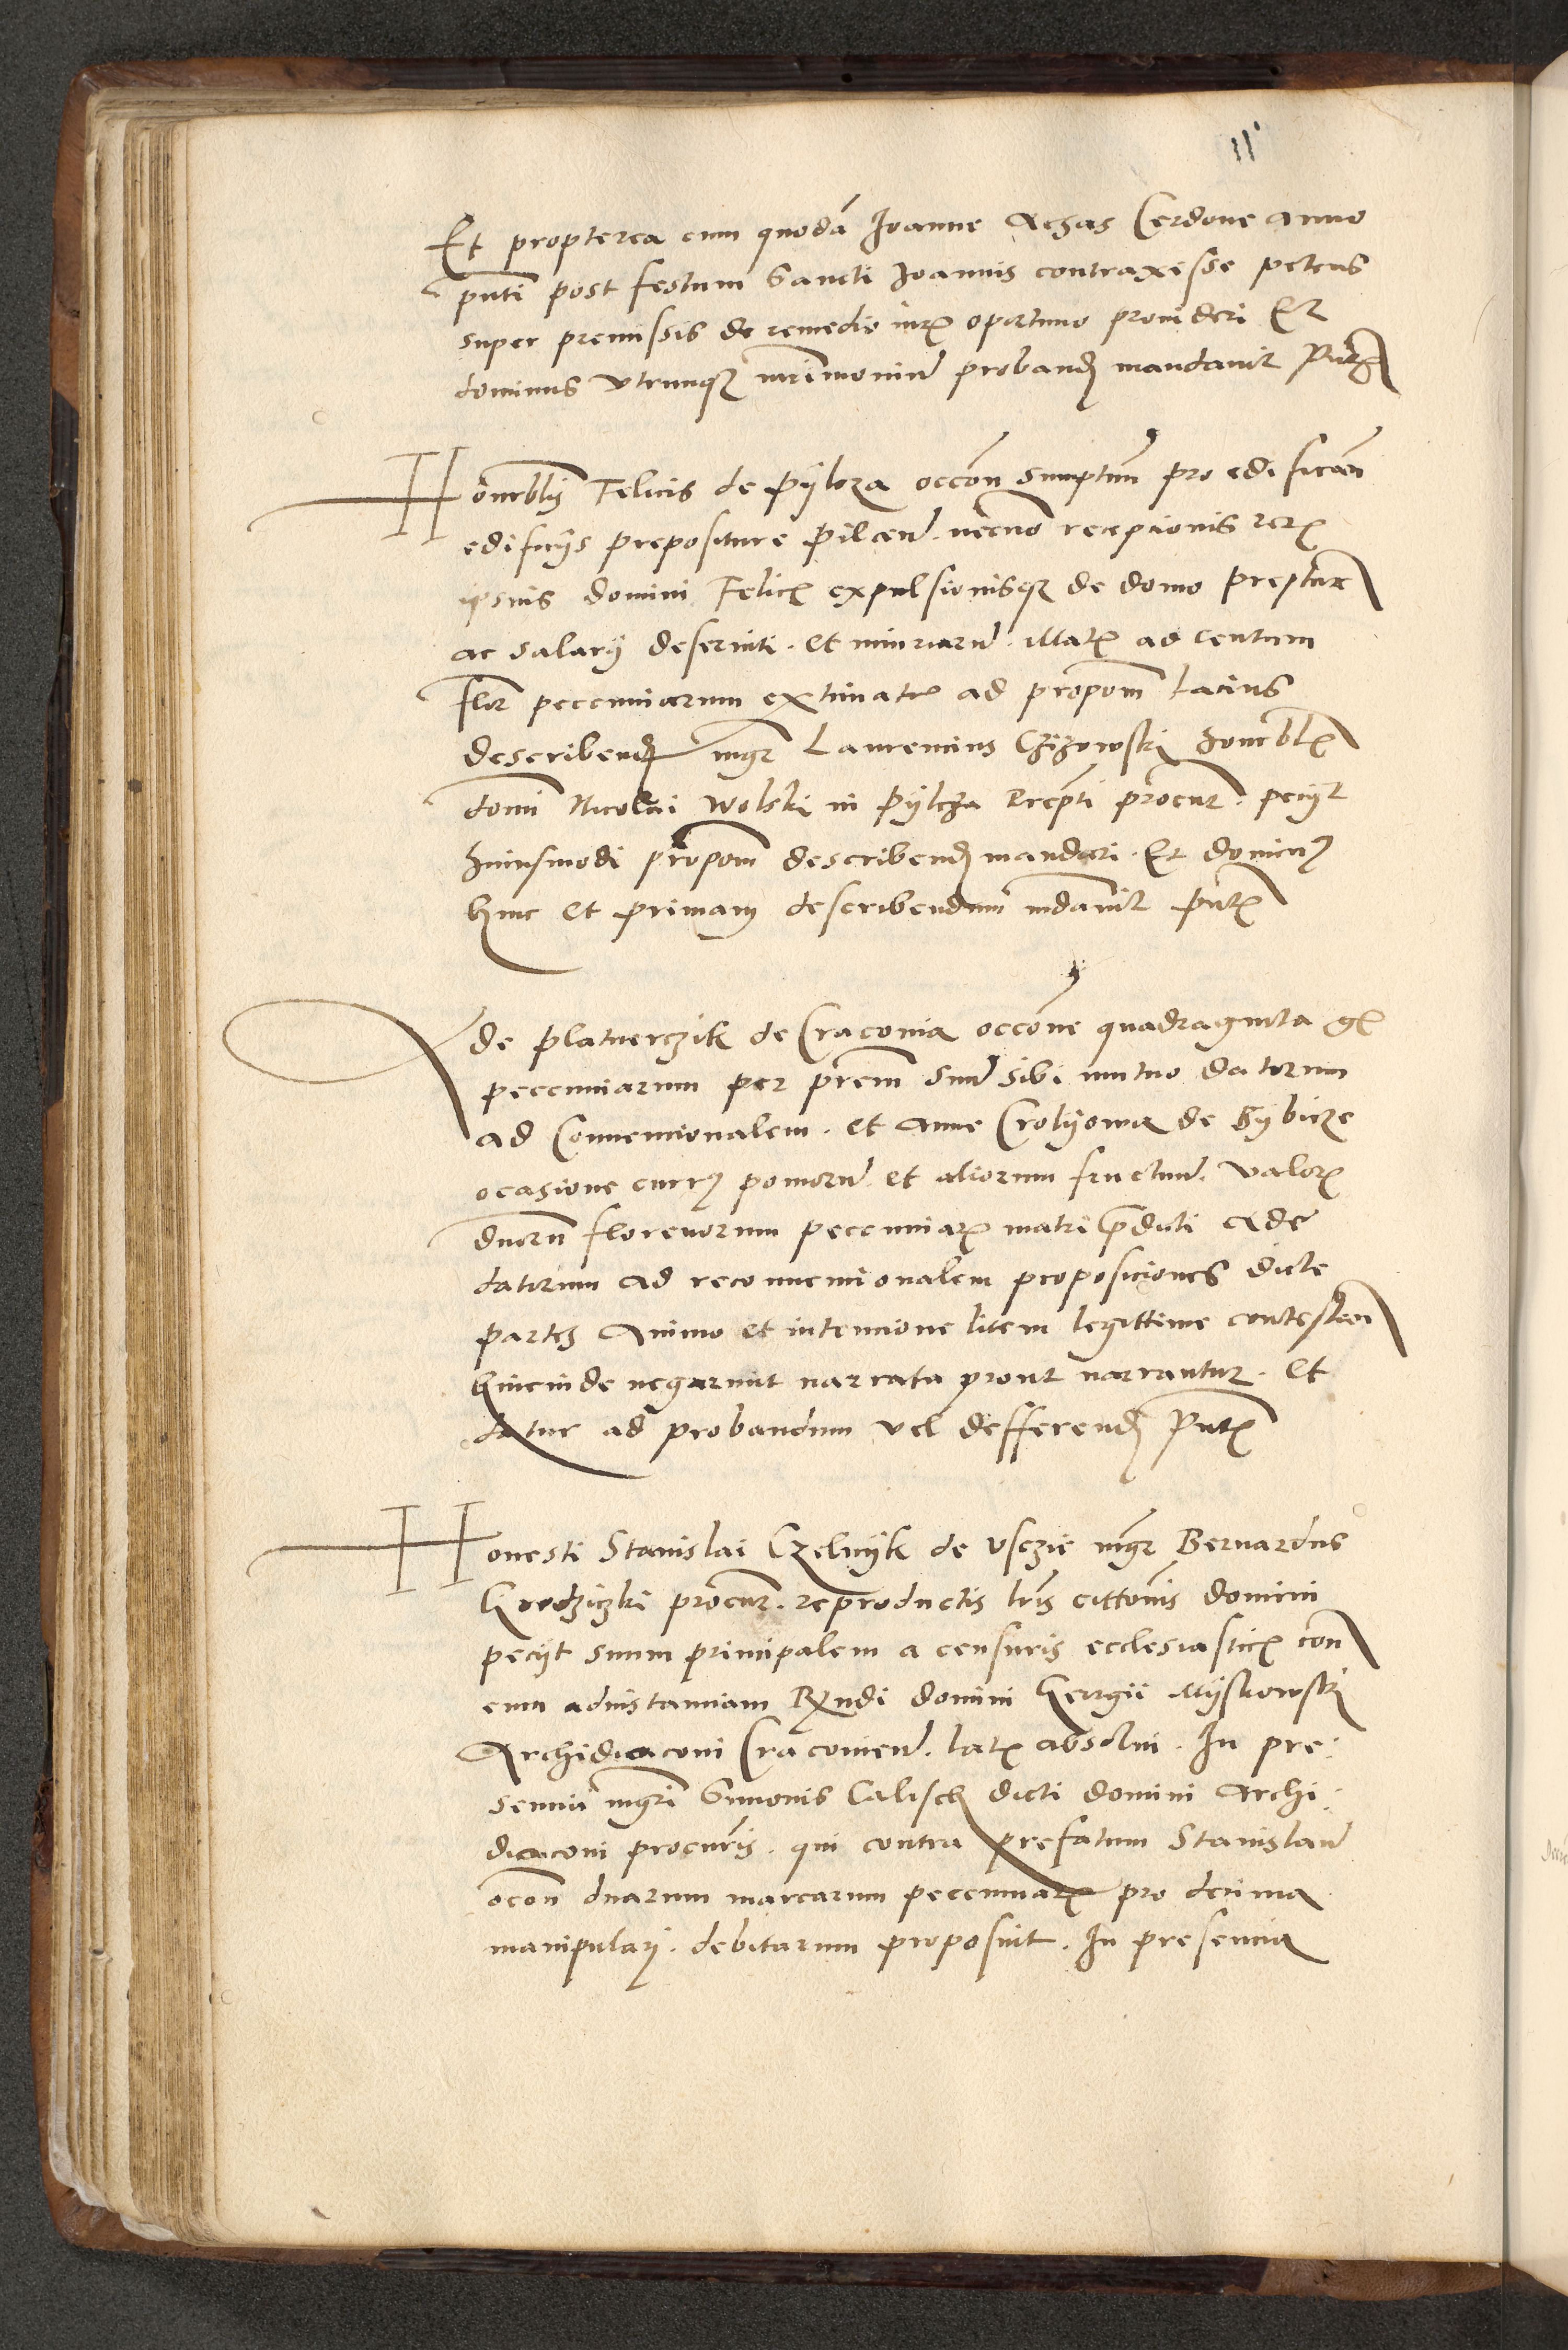 11
Et propterea cum quodā Joanne Achas Cerdone anno
pn̄ti post festum Sancti Joannis contraxisse petens
super premissis de remedio iuris oportuno provideri Et
dominus utrumque mr̄imoniu proband mandavit Pn̄tib
Honorabilis Felicis de Pylcza occōn sumptuū pro edificān
edificijs prepositure Pilcen. necnō recepcionis rerū
ipsius domini Felicis expulsionisque de domo prepture
ac salarij deserviti. et iniuriarū. illatis ad centum
flor peccuniarum extimatis ad propoēm lacius
describend mgr Laurencius Czizowski honrablis
domī Nicolai Wolski in Pylcza Prepti procur. pecijt
huiusmodi propoēm describend mandari. Et dominus
hinc et primam describendum mdavit Pn̄tib
de Platnerczik de Cracovia occōne quadraginta gr
peccuniarum per prem suū sibi mutuo datorum
ad Convencionalem. et Anne Crolyowa de Gybicze
ocasione currus pomorū. et aliorum fructuū. valoris
duorū florenorum peccuniaru matri predicti Ade
datorum ad reconvencionalem proposiciones dicte
partes Animo et intencione litem legittime contestan
hincinde negarunt narrata prout narrantur. Et
datur ad probandum vel defferend Pn̄tib
Honesti Stanislai Czelnyk de Usczie mgr Bernardus
Grodziczki procur. reproductis lr̄is cittōnis domini
pecijt suum principalem a censuris ecclesiasticis con
eum adinstanciam Rndi domini Georgii Myskowski
Archidiaconi Cracovien. latis absolvi. In pre:
sencia mgri Simonis Calisch dicti domini Archi:
diaconi procuris. qui contra prefatum Stanislaū
occōn duarum marcarum peccuniaru pro decima
manipulari. debitarum proposuit. In presencia